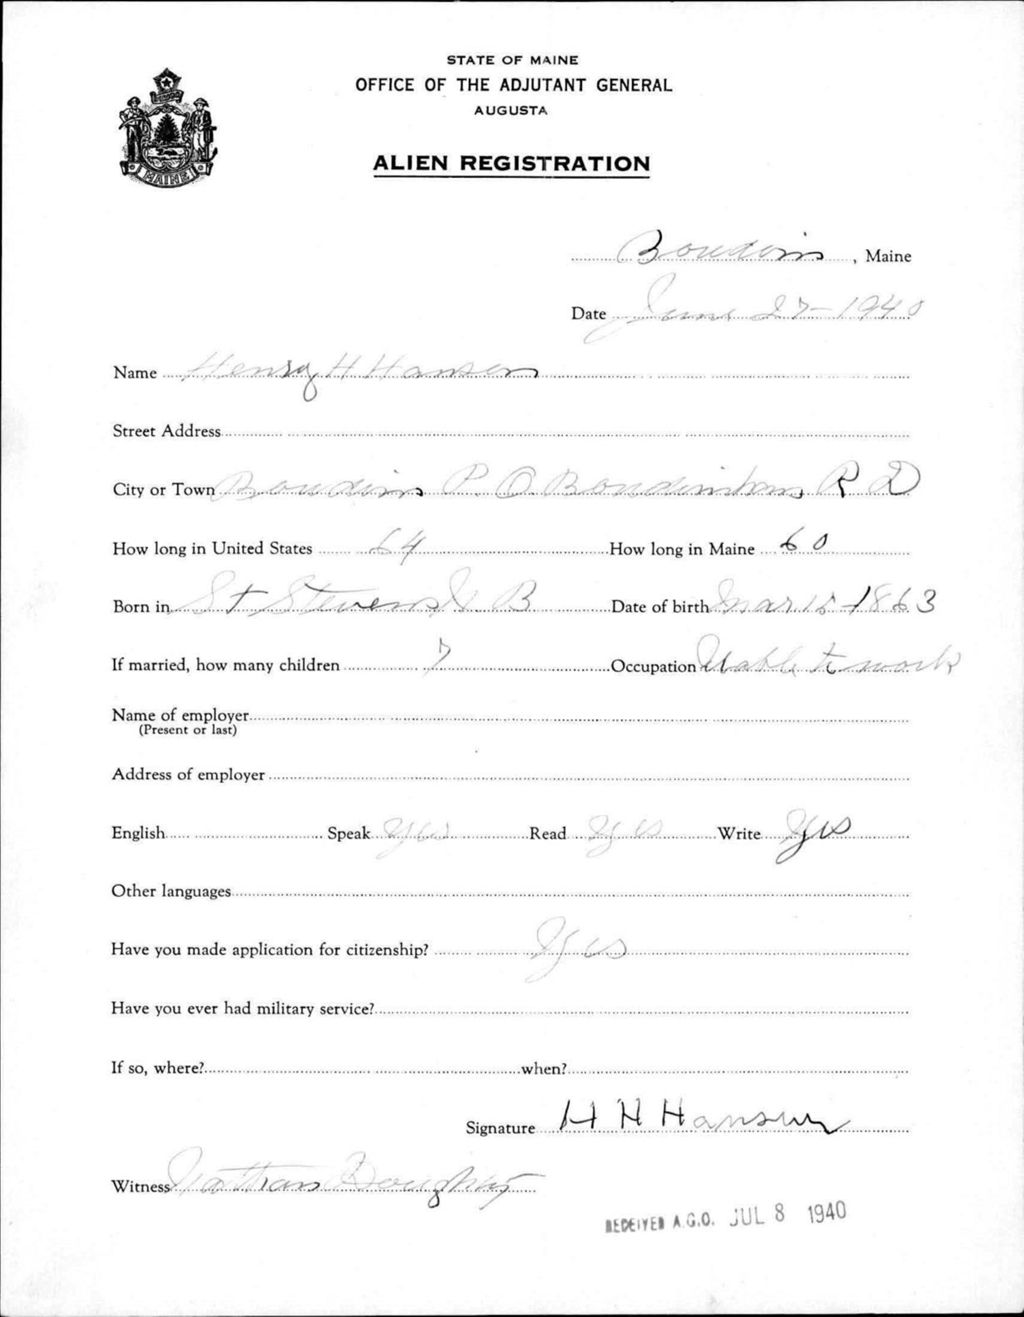 STATE OF MAINE
OFFICE OF THE ADJUTANT GENERAL
AUGUSTA
ALIEN REGISTRATION
MAINE
Bowdoin, Maine
Date June 27-1940
Name Henry H Hansen
Street Address
City or Town Bowdoin P. O. Bowdoinham R D
How long in United States 64 How long in Maine 60
Born in St Stevens N B Date of birth Mar 15-1863
If married, how many children 7 Occupation Uable to work
Name of employer
(Present or last)
Address of employer
English Speak Yes Read Yes Write Yes
Other languages
Have you made application for citizenship? Yes
Have you ever had military service?
If so, where? when?
Signature H H Hansen
Witness Nathan
RECEIVED A.G.O. JUL 8 1940